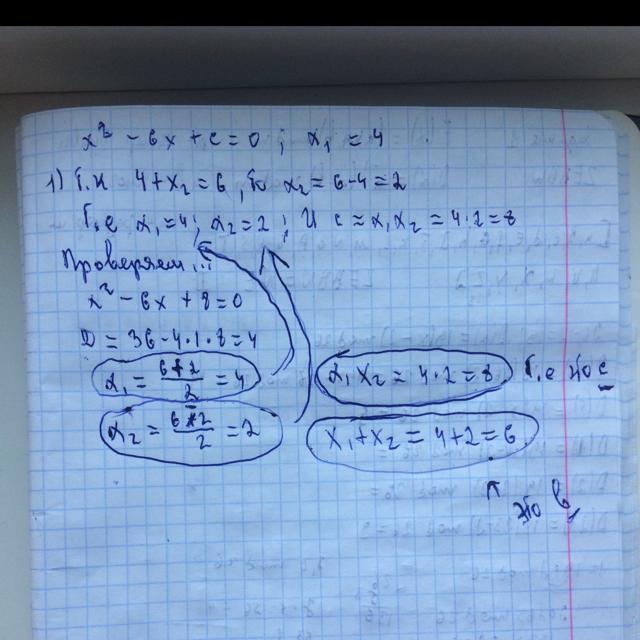 x² - 6x + c = 0 ; x₁ = 4
1) Т.к 4 + x₂ = 6, то x₂ = 6 - 4 = 2
Т.е x₁ = 4; x₂ = 2 ; и c = x₁ x₂ = 4 · 2 = 8
Проверяем...
x² - 6x + 8 = 0
D = 36 - 4 · 1 · 8 = 4
x₁ = (6 + 2)/2 = 4
x₁ x₂ = 4 · 2 = 8 Т.е это c
x₂ = (6 - 2)/2 = 2
x₁ + x₂ = 4 + 2 = 6
это в